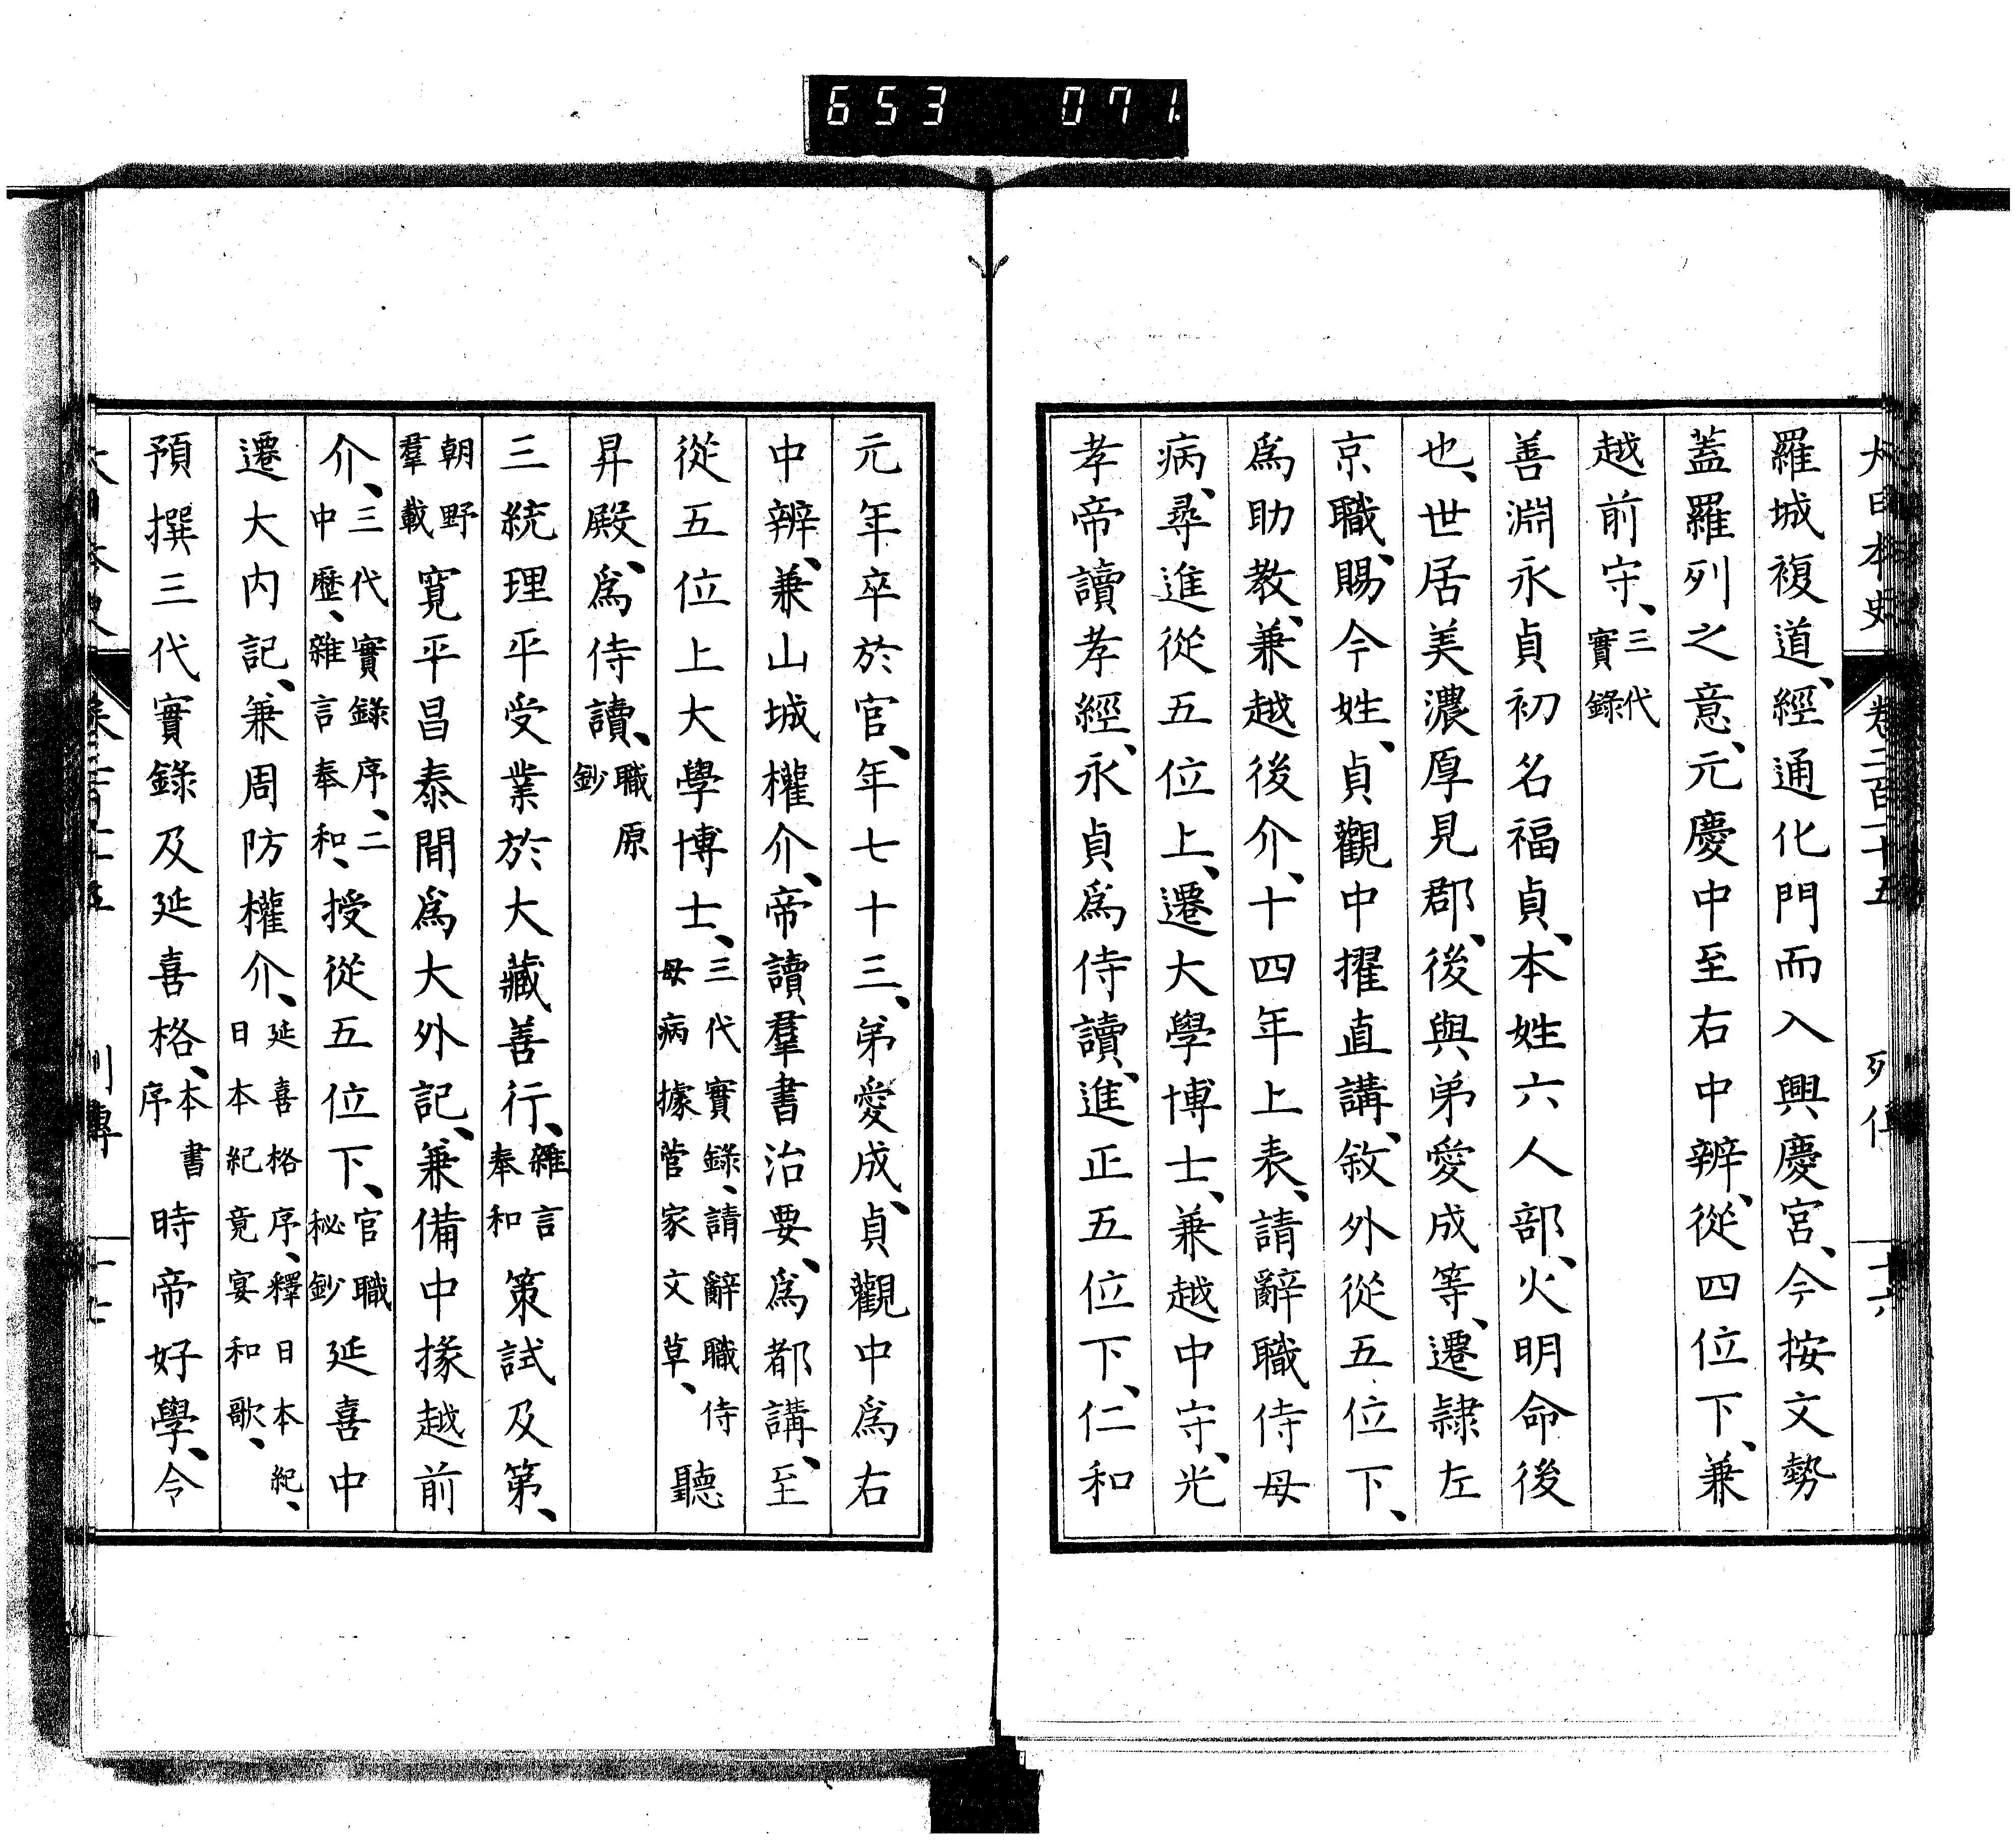 653 071
大日本史 卷二百十五 列傳 十六
羅城複道、經通化門而入興慶宮、今按文勢
蓋羅列之意、元慶中至右中辨、從四位下、兼
越前守、三代實錄
善淵永貞初名福貞、本姓六人部、火明命後
也、世居美濃厚見郡、後與弟愛成等、遷隷左
京職、賜今姓、貞觀中擢直講、敘外從五位下、
爲助教、兼越後介、十四年上表、請辭職侍母
病、尋進從五位上、遷大學博士、兼越中守、光
孝帝讀孝經、永貞爲侍讀、進正五位下、仁和
元年卒於官、年七十三、弟愛成、貞觀中爲右
中辨、兼山城權介、帝讀羣書治要、爲都講、至
從五位上大學博士、三代實錄、請辭職侍母病據菅家文草、聽
昇殿、爲侍讀、職原鈔
三統理平受業於大藏善行、雜言奉和策試及第、
朝野羣載寬平昌泰間爲大外記、兼備中掾越前
介、三代實錄序、二中歷、雜言奉和、授從五位下、官職秘鈔延喜中
遷大内記、兼周防權介、延喜格序、釋日本紀、日本紀竟宴和歌、
預撰三代實錄及延喜格、本書序時帝好學、令